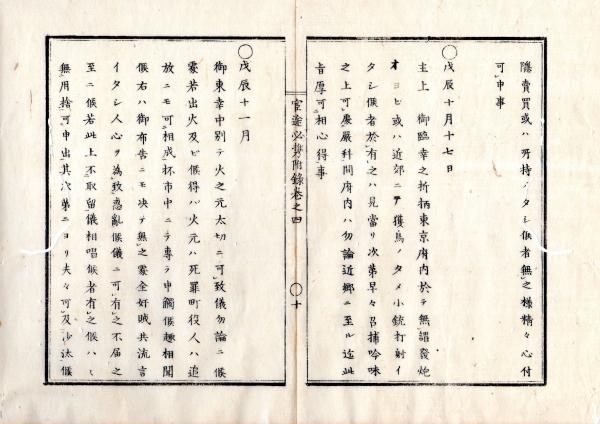 隱賣買或ハ所持イタシ候者無之樣精々心付
可申事
○戊辰十月十七日
主上 御臨幸之折柄東京府內於テ無謂發炮
オヨビ或ハ近郊ニテ獲鳥ノタメ小銃打射イ
タシ候者於有之ハ見當リ次第早々召捕吟味
之上可處嚴科間府內ハ勿論近鄉ニ至ル迄此
旨厚可相心得事
官途必携附錄卷之四
○十
○戊辰十一月
御東幸中別テ火之元太切ニ可致儀勿論ニ候
處若出火及ビ候得バ火元ハ死罪町役人ハ追
放ニモ可相成杯市中ニテ專ラ申觸候趣相聞
候右ハ御布告ニモ決テ無之處全奸賊共流言
イタシ人心ヲ為致惑亂候儀ニ可有之不屆之
至ニ候若此上不取留儀相唱候者有之候ハヾ
無用捨可申出其次第ニヨリ夫々可及沙汰候